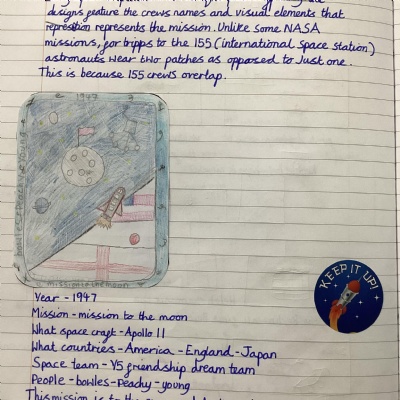 designs feature the crews names and visual elements that
represents the mission. Unlike some NASA
missions, for tripps to the 155 (international Space station)
astronauts wear two patches as opposed to Just one.
This is because 155 crews overlap.
1947
mission to the moon
KEEP IT UP!
Year - 1947
Mission - mission to the moon
What space craft - Apollo 11
What countries - America - England - Japan
Space team - Y5 friendship dream team
People - bowles - Peachy - young
This mission is to the